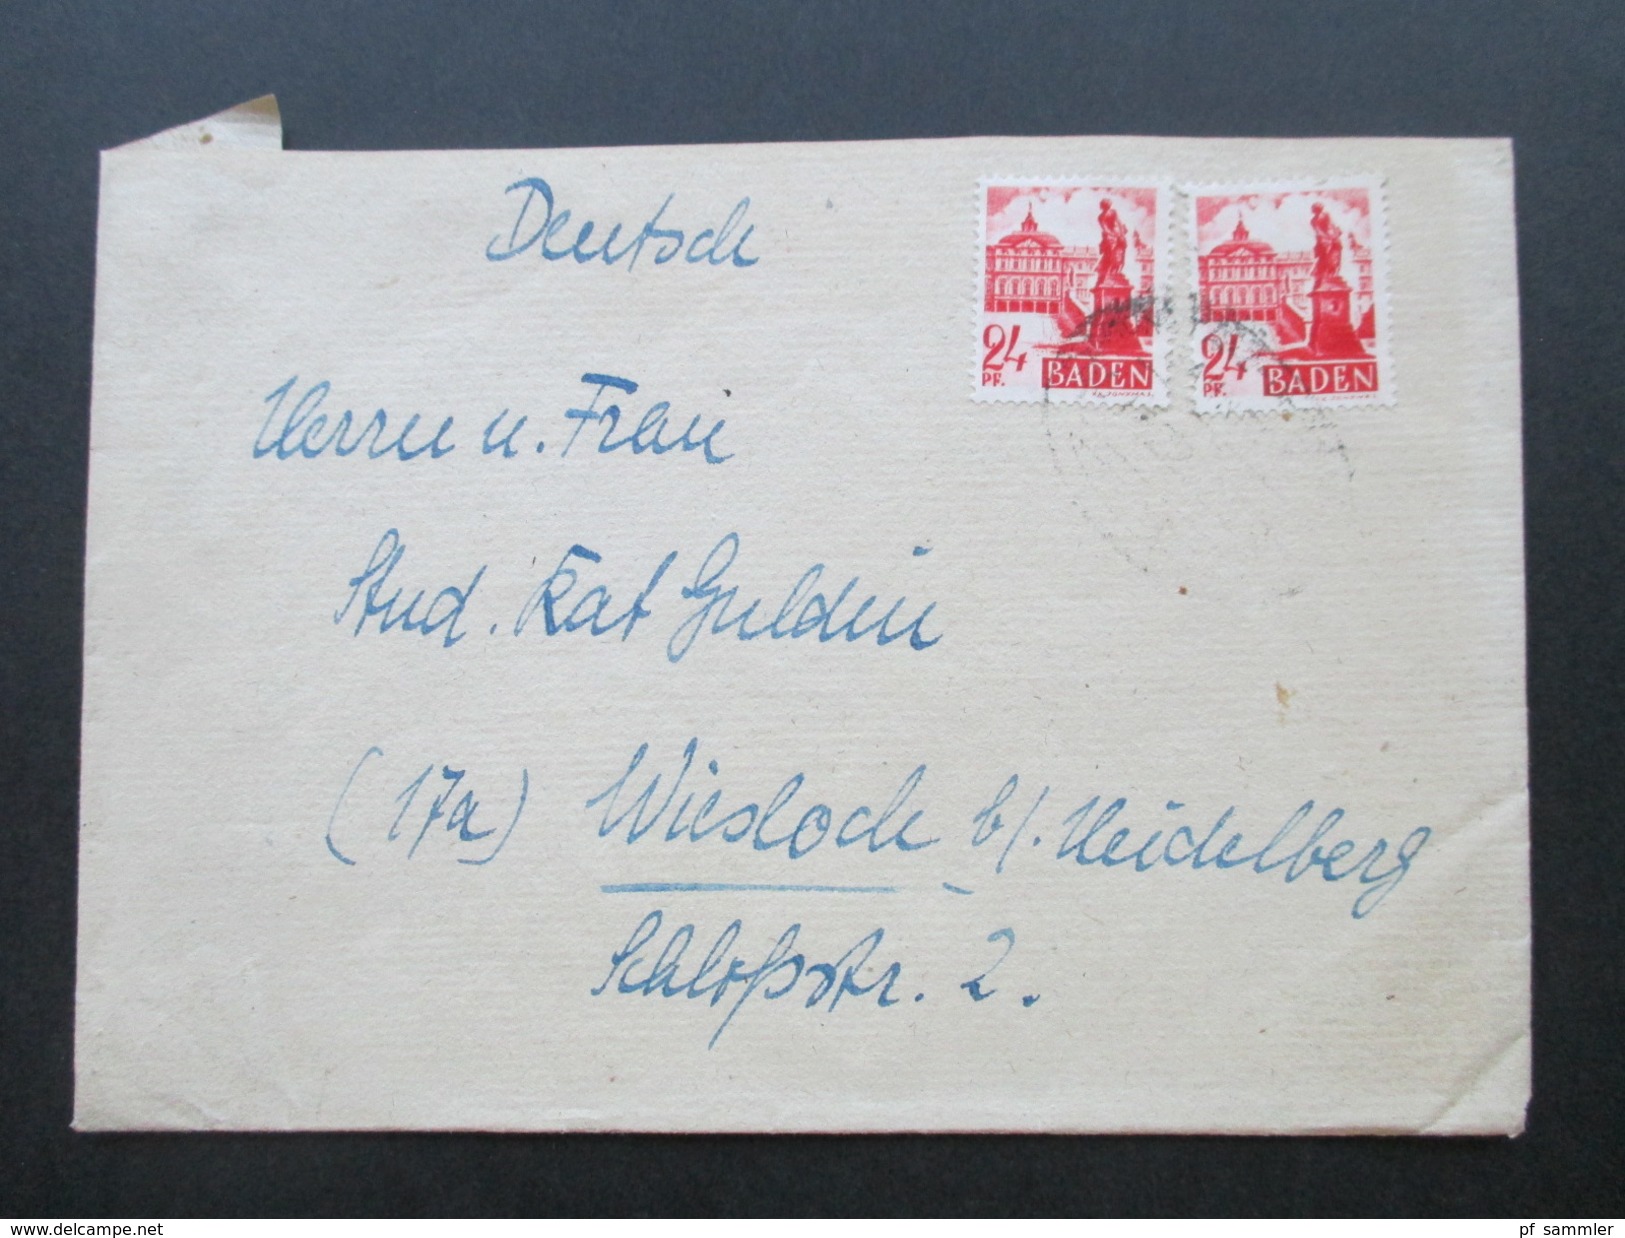 Deutsch
24
PF.
BADEN
24
PF.
BADEN
Herrn u. Frau
Stud. Rat Guldin
(17a) Wiesloch b/. Heidelberg
Schloßstr. 2.
www.delcampe.net
pf_sammler